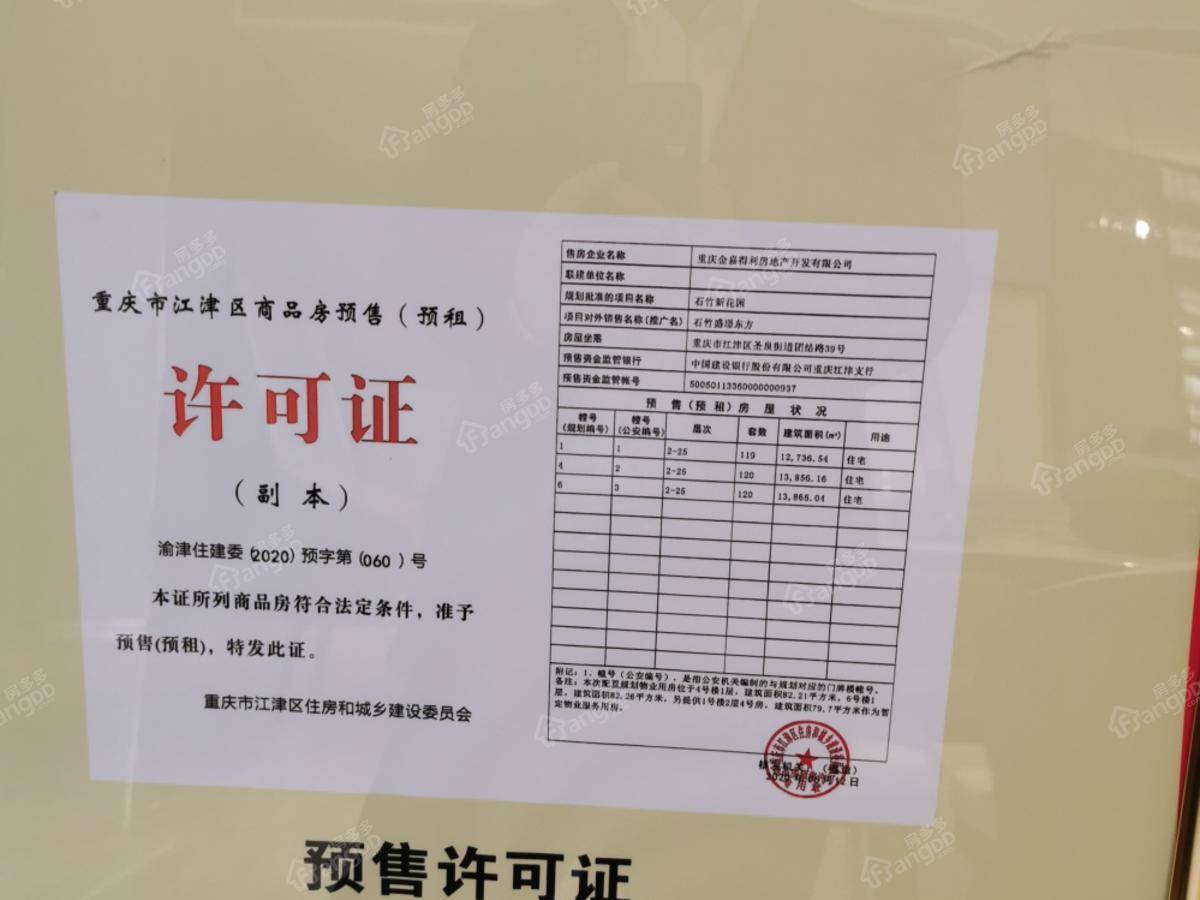 重庆市江津区商品房预售（预租）
许可证
（副 本）
渝津住建委（2020）预字第（060）号
本证所列商品房符合法定条件，准予
预售(预租)，特发此证。
重庆市江津区住房和城乡建设委员会
售房企业名称 重庆金嘉得利房地产开发有限公司
联建单位名称
规划批准的项目名称 石竹新花园
项目对外销售名称(推广名) 石竹盛璟东方
房屋坐落 重庆市江津区圣泉街道团结路39号
预售资金监管银行 中国建设银行股份有限公司重庆江津支行
预售资金监管帐号 50050113360000000937
预 售（预 租）房 屋 状 况
幢号（规划编号） 幢号（公安编号） 层次 套数 建筑面积(㎡) 用途
1 1 2-25 119 12,736.54 住宅
4 2 2-25 120 13,856.16 住宅
6 3 2-25 120 13,865.04 住宅
附记：1、幢号（公安编号），是指公安机关编制的与规划对应的门牌楼幢号。
备注：本次配置规划物业用房位于4号楼1层，建筑面积82.21平方米，6号楼1
层，建筑面积82.26平方米，另提供1号楼2层4号房，建筑面积79.7平方米作为暂
定物业服务用房。
预售许可证
房多多
FangDD